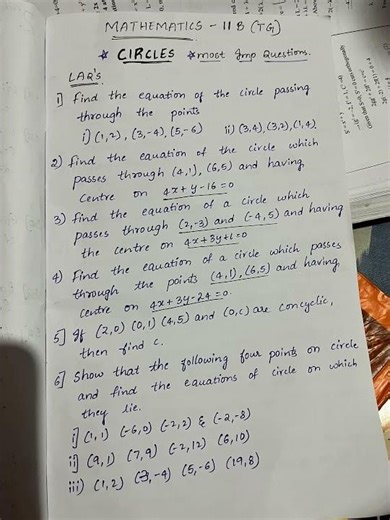 MATHEMATICS - II B (TG)
☆ CIRCLES ☆ most Imp Questions.
LAQ's
1) find the equation of the circle passing
through the points
i) (1,2), (3,-4), (5,-6) ii) (3,4), (3,2), (1,4).
2) find the equation of the circle which
passes through (4,1), (6,5) and having
centre on 4x+y-16=0
3) find the equation of a circle which
passes through (2,-3) and (-4,5) and having
the centre on 4x+3y+1=0
4) Find the equation of a circle which passes
through the points (4,1), (6,5) and having
centre on 4x+3y-24=0.
5] If (2,0) (0,1) (4,5) and (0,c) are concyclic,
then find c.
6] Show that the following four points on circle
and find the equations of circle on which
they lie.
i] (1,1) (-6,0) (-2,2) & (-2,-8)
ii] (9,1) (7,9) (-2,12) (6,10)
iii) (1,2) (3,-4) (5,-6) (19,8)